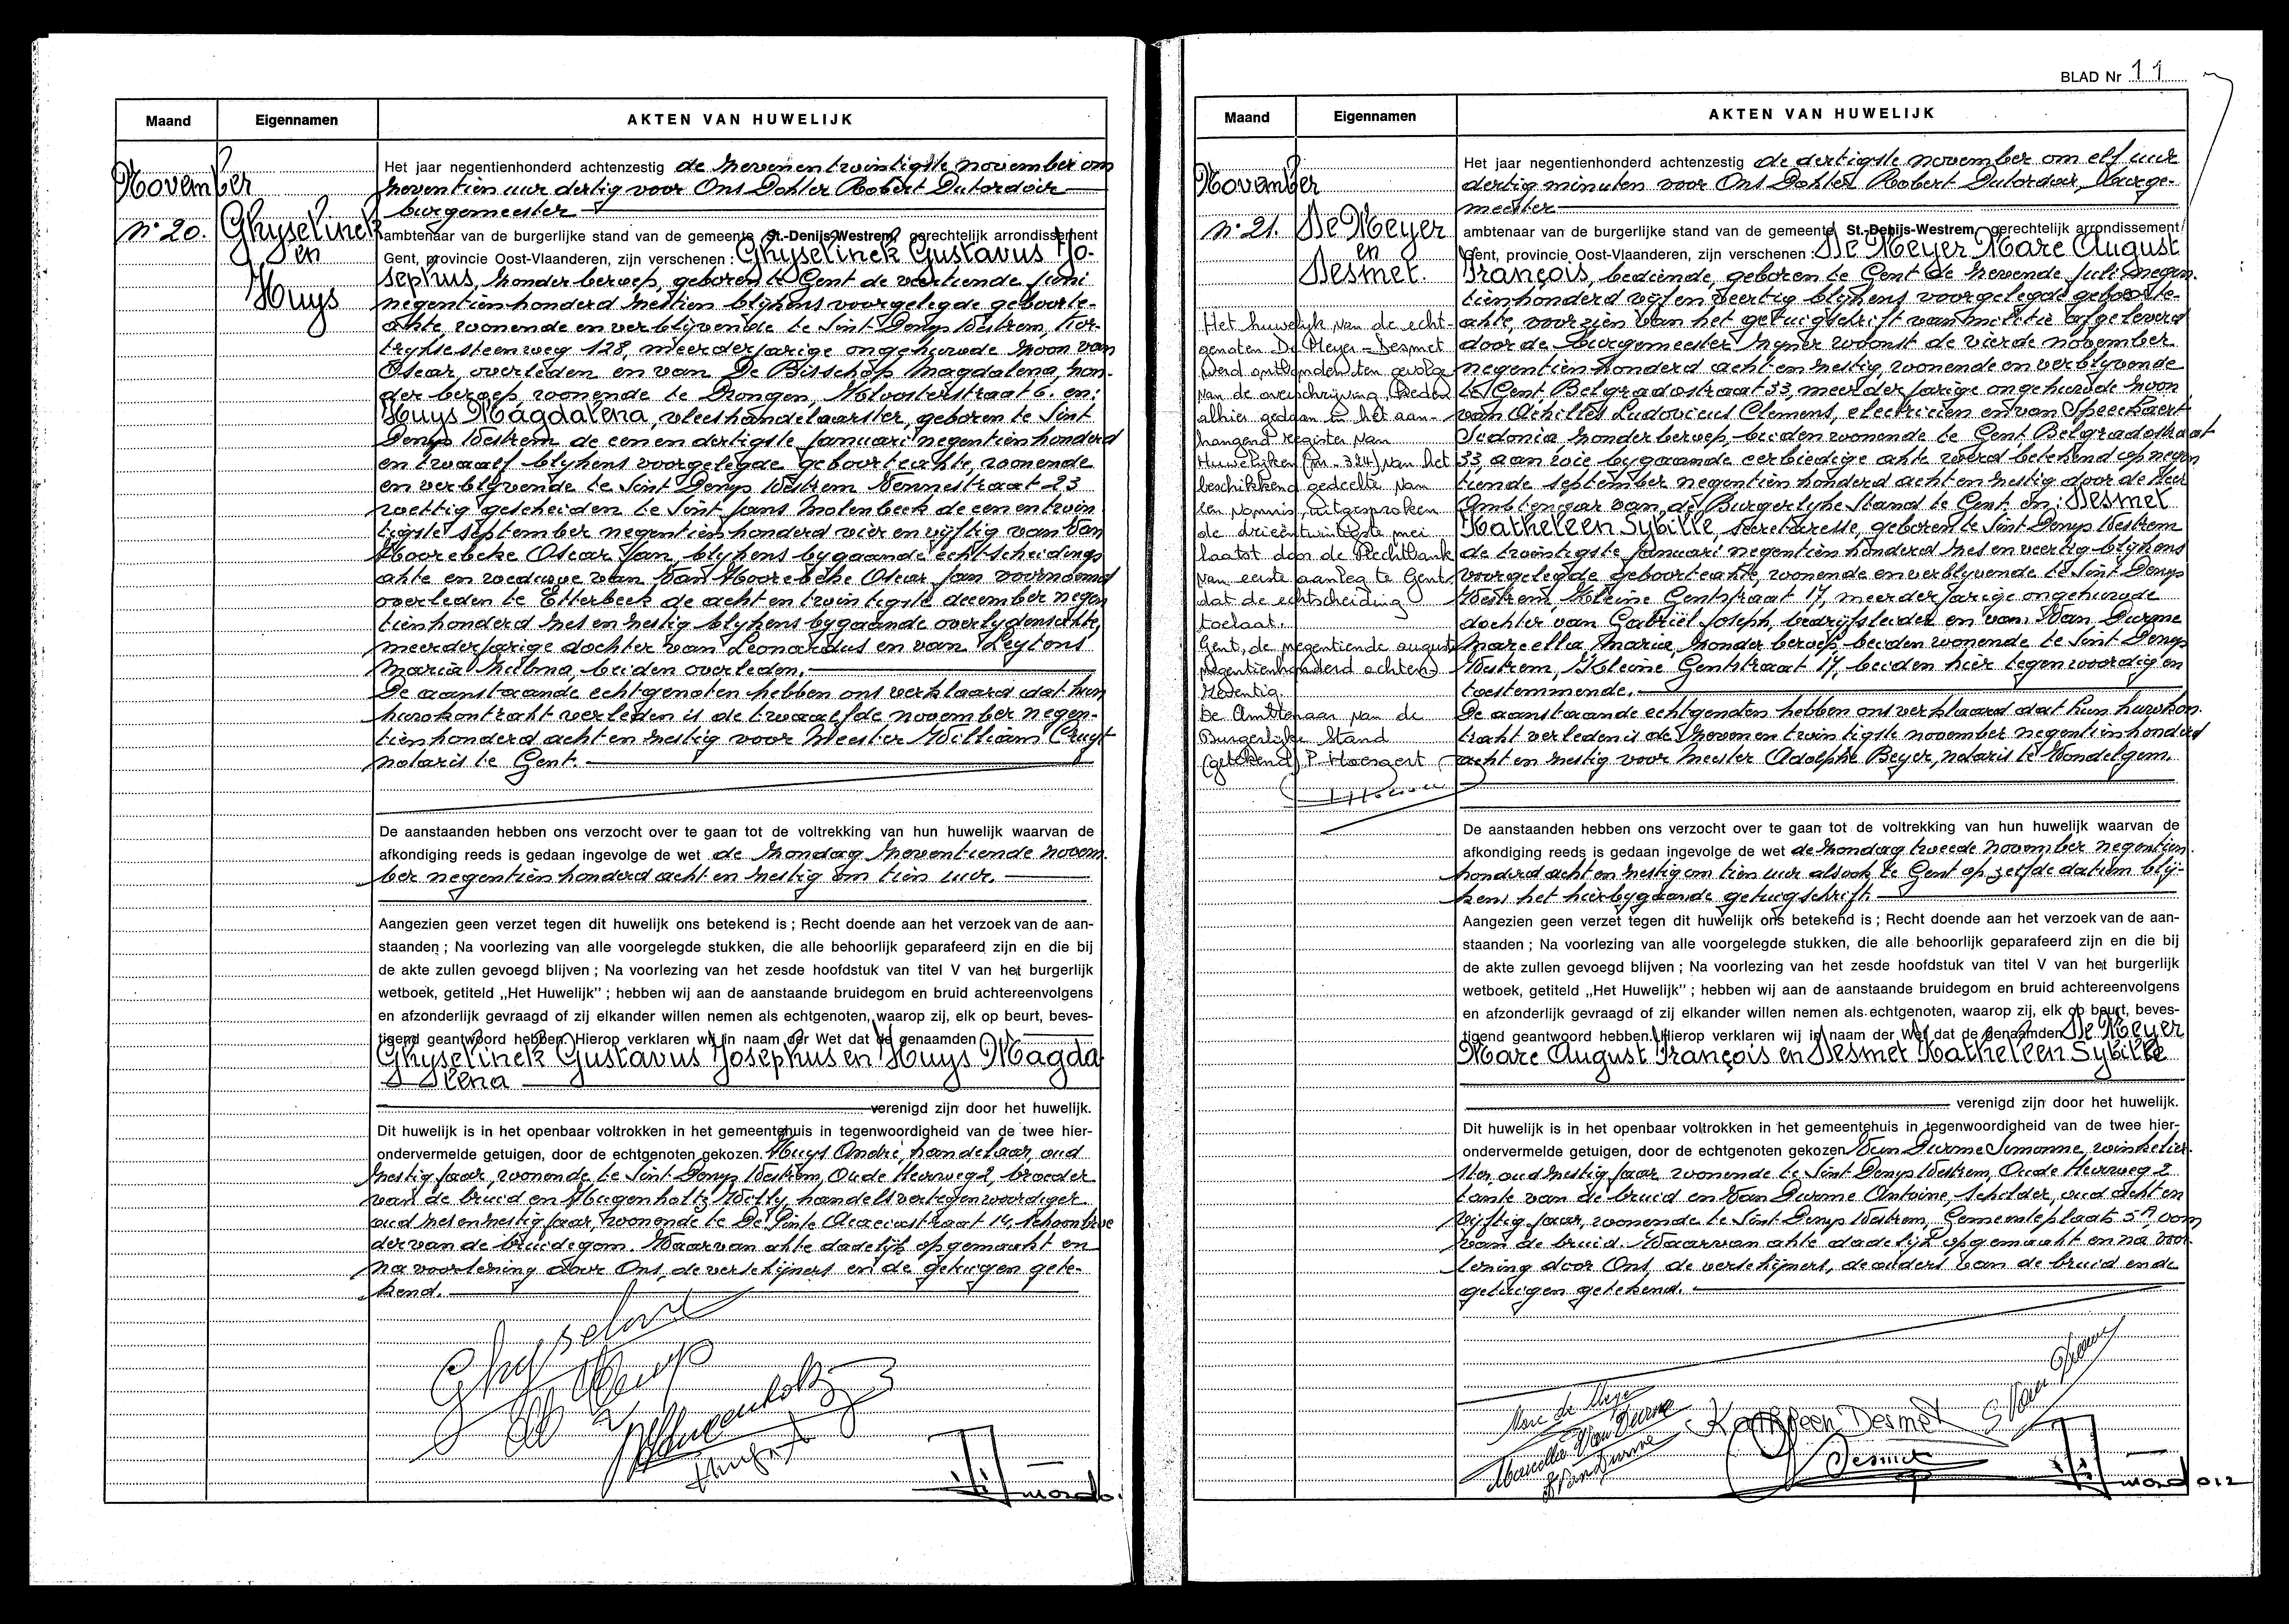 Maand
Eigennamen
AKTEN VAN HUWELIJK
November
n° 20.
Ghyselinck
en
Huys
Het jaar negentienhonderd achtenzestig de zevenentwintigste november om
zeventien uur dertig voor Ons Dokter Robert Dutordoir
burgemeester
ambtenaar van de burgerlijke stand van de gemeente St.-Denijs-Westrem, gerechtelijk arrondissement
Gent, provincie Oost-Vlaanderen, zijn verschenen : Ghyselinck Gustavus Jo-
sephus, zonder beroep, geboren te Gent de veertiende juni
negentienhonderd zestien blijkens voorgelegde geboorte-
akte, wonende en verblijvende te Sint Denys Westrem, Kor-
tryksesteenweg 128, meerderjarige ongehuwde zoon van
Oscar, overleden en van De Bisschop Magdalena, zon-
der beroep, wonende te Drongen, Kloosterstraat 6. en:
Huys Magdalena, vleeshandelaarster, geboren te Sint
Denys Westrem de eenendertigste januari negentienhonderd
en twaalf blijkens voorgelegde geboorteakte, wonende
en verblijvende te Sint Denys Westrem Vennestraat 23
wettig gescheiden te Sint Jans Molenbeek de eenentwin
tigste september negentienhonderd vierenvijftig van Van
Hoorebeke Oscar Jan, blijkens bygaande echtscheidings
akte en weduwe van Van Hoorebeke Oscar Jan voornoemd
overleden te Etterbeek de achtentwintigste december negen
tienhonderd zesenzestig blijkens bygaande overlydensakte,
meerderjarige dochter van Leonardus en van Leytens
Maria Zulma, beiden overleden.
De aanstaande echtgenoten hebben ons verklaard dat hun
huwkontrakt verleden is de twaalfde november negen-
tienhonderd achtenzestig voor Meester William Cruyt
notaris te Gent.
De aanstaanden hebben ons verzocht over te gaan tot de voltrekking van hun huwelijk waarvan de
afkondiging reeds is gedaan ingevolge de wet de zondag zeventiende novem-
ber negentienhonderd achtenzestig om tien uur.
Aangezien geen verzet tegen dit huwelijk ons betekend is ; Recht doende aan het verzoek van de aan-
staanden ; Na voorlezing van alle voorgelegde stukken, die alle behoorlijk geparafeerd zijn en die bij
de akte zullen gevoegd blijven ; Na voorlezing van het zesde hoofdstuk van titel V van het burgerlijk
wetboek, getiteld „Het Huwelijk" ; hebben wij aan de aanstaande bruidegom en bruid achtereenvolgens
en afzonderlijk gevraagd of zij elkander willen nemen als echtgenoten, waarop zij, elk op beurt, beves-
tigend geantwoord hebben. Hierop verklaren wij in naam der Wet dat de genaamden
Ghyselinck Gustavus Josephus en Huys Magda
lena
verenigd zijn door het huwelijk.
Dit huwelijk is in het openbaar voltrokken in het gemeentehuis in tegenwoordigheid van de twee hier-
ondervermelde getuigen, door de echtgenoten gekozen. Huys André, handelaar, oud
zestig jaar, wonende te Sint Denys Westrem, Oude Heerweg 2, broeder
van de bruid en Hugenholtz Willy, handelsvertegenwoordiger
oud zesenzestig jaar, wonende te De Pinte Acaciastraat 14, schoonbroe
der van de bruidegom. Waarvan akte dadelijk opgemaakt en
na voorlezing door Ons, de verschijners en de getuigen gete-
kend.
BLAD Nr 11
Maand
Eigennamen
AKTEN VAN HUWELIJK
November
n° 21.
De Meyer
en
Desmet.
Het huwelijk van de echt-
genoten De Meyer-Desmet
werd ontbonden ten gevolge
van de overschrijving, heden
alhier gedaan in het aan-
hangend register van
Huwelijken (nr. 324) van het
beschikkend gedeelte van
een vonnis, uitgesproken
de drieëntwintigste mei
laatst door de Rechtbank
van eerste aanleg te Gent,
dat de echtscheiding
toelaat.
Gent, de negentiende augustus
negentienhonderd achten-
zeventig.
De Ambtenaar van de
Burgerlijke Stand
(getekend) P. Hoesaert
Het jaar negentienhonderd achtenzestig de dertigste november om elf uur
dertig minuten voor Ons Dokter Robert Dutordoir, burge-
meester
ambtenaar van de burgerlijke stand van de gemeente St.-Denijs-Westrem, gerechtelijk arrondissement
Gent, provincie Oost-Vlaanderen, zijn verschenen : De Meyer Marc August
François, bediende, geboren te Gent de zevende juli negen-
tienhonderd vijfenveertig blijkens voorgelegde geboorte-
akte, voorzien van het getuigschrift van militie afgeleverd
door de burgemeester zyner woonst de vierde november
negentienhonderd achtenzestig, wonende en verblyvende
te Gent Belgradostraat 33, meerderjarige ongehuwde zoon
van Achilles Ludovicus Clemens, electricien en van Speeckaert
Sidonia zonder beroep, beiden wonende te Gent Belgradostraat
33, aan wie bygaande eerbiedige akte werd betekend op negen
tiende september negentienhonderd achtenzestig door de Heer
Ambtenaar van de Burgerlyke Stand te Gent. en: Desmet
Katheleen Sybille, secretaresse, geboren te Sint Denys Westrem
de twintigste januari negentienhonderd zesenveertig blijkens
voorgelegde geboorteakte, wonende en verblyvende te Sint Denys
Westrem, Kleine Gentstraat 17, meerderjarige ongehuwde
dochter van Gabriël Joseph, bedrijfsleider en van Van Durme
Marcella Maria, zonder beroep beiden wonende te Sint Denys
Westrem, Kleine Gentstraat 17, beiden hier tegenwoordig en
toestemmende.
De aanstaande echtgenoten hebben ons verklaard dat hun huwkon-
trakt verleden is de zevenentwintigste november negentienhonderd
achtenzestig voor Meester Adolphe Beyer, notaris te Wondelgem.
De aanstaanden hebben ons verzocht over te gaan tot de voltrekking van hun huwelijk waarvan de
afkondiging reeds is gedaan ingevolge de wet de zondag tweede november negentien-
honderd achtenzestig om tien uur alsook te Gent op zelfde datum blij-
kens het hierbygaande getuigschrift.
Aangezien geen verzet tegen dit huwelijk ons betekend is ; Recht doende aan het verzoek van de aan-
staanden ; Na voorlezing van alle voorgelegde stukken, die alle behoorlijk geparafeerd zijn en die bij
de akte zullen gevoegd blijven ; Na voorlezing van het zesde hoofdstuk van titel V van het burgerlijk
wetboek, getiteld „Het Huwelijk" ; hebben wij aan de aanstaande bruidegom en bruid achtereenvolgens
en afzonderlijk gevraagd of zij elkander willen nemen als echtgenoten, waarop zij, elk op beurt, beves-
tigend geantwoord hebben. Hierop verklaren wij in naam der Wet dat de genaamden De Meyer
Marc August François en Desmet Katheleen Sybille
verenigd zijn door het huwelijk.
Dit huwelijk is in het openbaar voltrokken in het gemeentehuis in tegenwoordigheid van de twee hier-
ondervermelde getuigen, door de echtgenoten gekozen Van Durme Simonne, winkelier-
ster, oud zestig jaar wonende te Sint Denys Westrem, Oude Heerweg 2
tante van de bruid en Van Durme Antoine, schilder, oud achten
vijftig jaar, wonende te Sint Denys Westrem, Gemeenteplaats 5A oom
van de bruid. Waarvan akte dadelijk opgemaakt en na voor-
lezing door Ons, de verschijners, de ouders van de bruid en de
getuigen getekend.
Marc de Meyer
Marcella Van Durme
Kathleen Desmet
S Van Durme
A VanDurme
Desmet